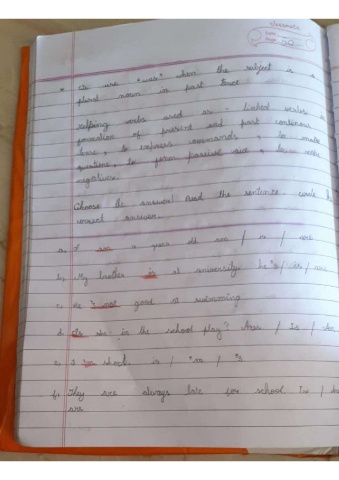 classmate
Date
Page
* We use "were" when the subject is a
plural noun in past tense
Helping verbs used as :- linked verbs
formation of present and past continuous
tense, to express commands, to make
questions, to form passive voice & to make
negatives.
Choose the answer! Read the sentence. write the
correct answer.
a. I am a years old am / is / are
b, My brother is at university. he's / is / are
c, He's not good at swimming
d. Is she in the school play? / Is / she
e, I'm shock. is / 'm / 's
f, They are always late for school. Is /
are